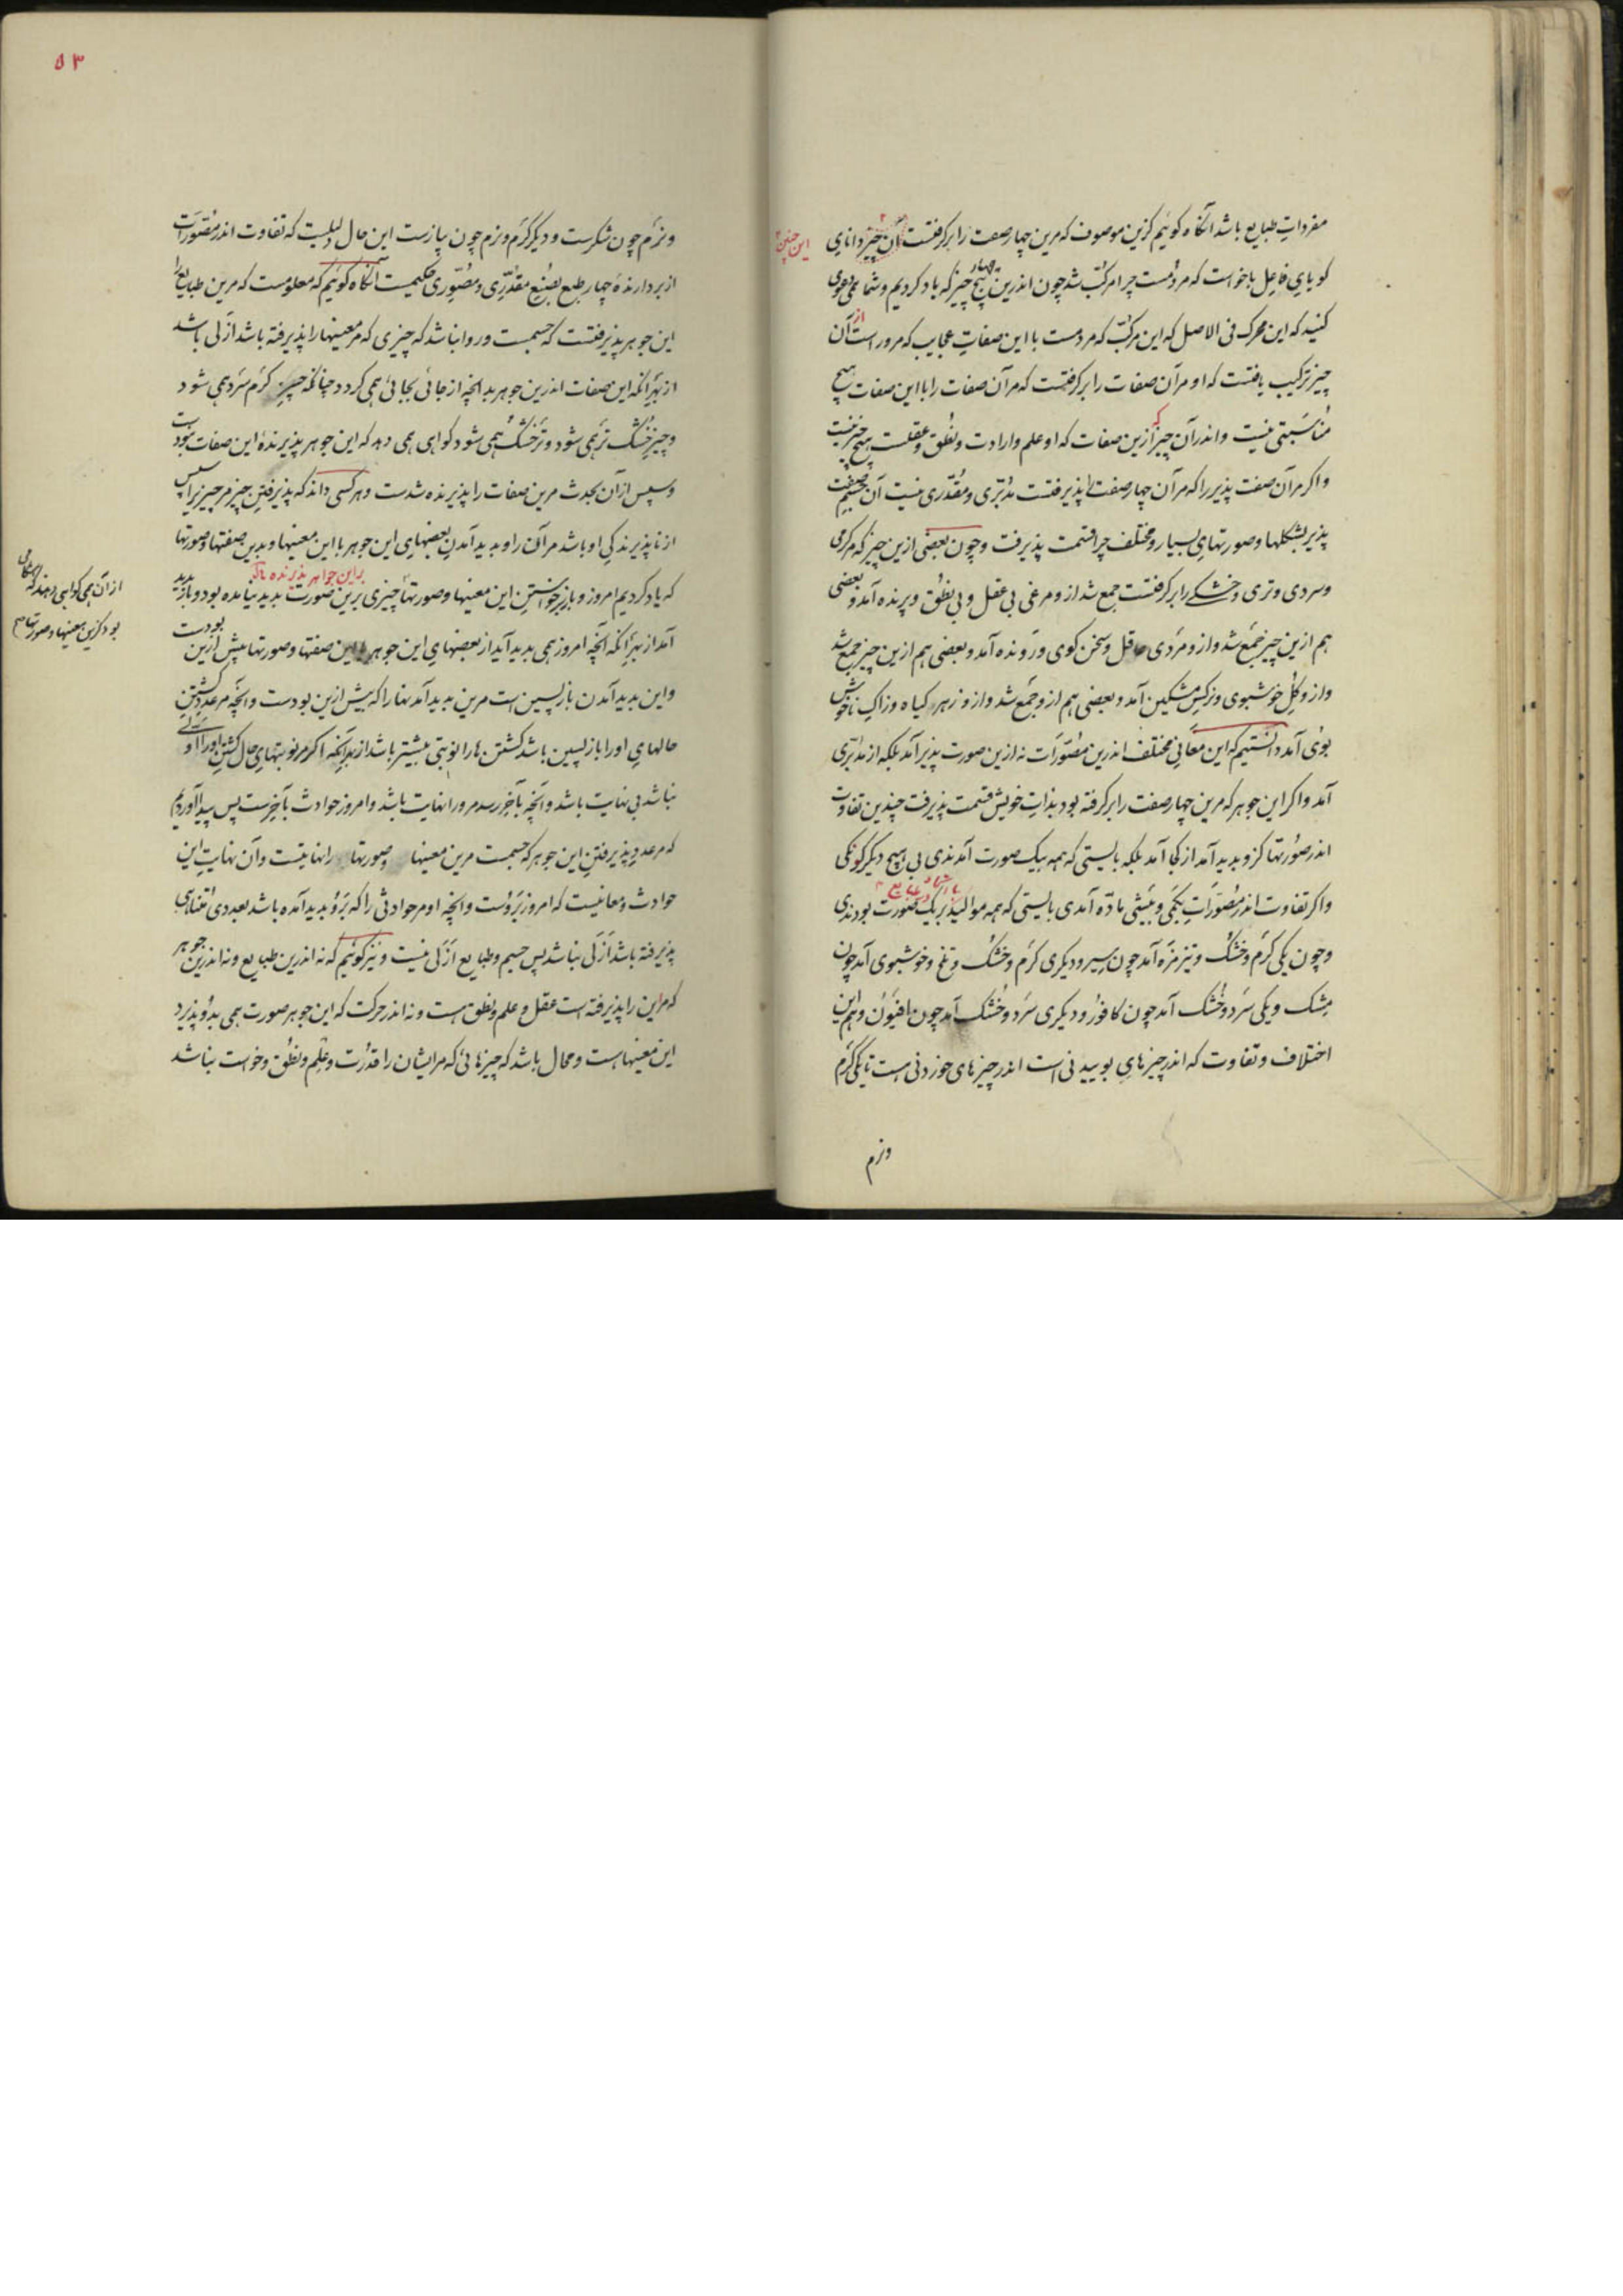 مفرداتِ طبایع باشد آنگاه گوئیم کزین موصوف که مرین چهار صفت را برگرفتست آن چیز دانای
این چنین
گویای فاعل باخواست که مردمست چرا مرکّب شد چون اندرین هیچ چیز که یاد کردیم و شما همی دعوی
چهار
کنید که این محرک فی الاصل که این مرکّب که مردمست با این صفاتِ عجایب که مرور است از آن
چیز ترکیب یافتست که او مر آن صفات را برگرفتست که مر آن صفات را با این صفات هیچ
مناسبتی نیست و اندر آن چیز ازین صفات که او علم و ارادت و نُطق و عقلست هیچ چیز نیست
و اگر مر آن صفت پذیر را که مر آن چهار صفت را پذیرفتست مدبّری و مقدّری نیست آن جسم صفت
پذیر بشکلها و صورتهایِ بسیار و مختلف چرا قسمت پذیرفت و چون بعضی ازین چیز که مر گرمی
و سردی و تری و خشکی را برگرفتست جمع شد ازو مرغی بی عقل و بی نطق و پرنده آمد و بعضی
هم ازین چیز جمع شد و ازو مردی عاقل و سخن گوی و رونده آمد و بعضی هم ازین چیز جمع شد
و ازو گلِ خوشبوی و نرگسِ مشکین آمد و بعضی هم ازو جمع شد و ازو زهر گیاه و زاکِ ناخوش
بوی آمد دانستیم که این معانیِ مختلف اندرین مصوّرات نه ازین صورت پذیر آمد بلکه از مدبّری
آمد و اگر این جوهر که مرین چهار صفت را برگرفته بود بذاتِ خویش قسمت پذیرفت چندین تفاوت
اندر صورتها کزو بدید آمد از کجا آمد بلکه بایستی که همه بیک صورت آمدندی بی هیچ دیگرگونگی
و اگر تفاوت اندر مصوّرات بکمّی و بیشی مادّه آمدی بایستی که همه موالید بر یک صورت بودندی
و چون یکی گرم و خشک و تیز مزه آمد چون سیر و دیگری گرم و خشک و تلخ و خوشبوی آمد چون
مشک و یکی سرد و خُشک آمد چون کافور و دیگری سرد و خُشک آمد چون افیون و هم این
اختلاف و تفاوت که اندر چیزهایِ بوییدنی است اندر چیزهای خوردنی هست تا یکی گرم
ونرم
۵۳
و نرم چون شکرست و دیگر گرم و نرم چون پیازست این حال دلیلست که تفاوت اندر مصوّرات
از بردارندهٔ چهار طبع بصُنعِ مقدّری و مصوّری حکیمست آنگاه گوئیم که معلومست که مرین طبایع را
این جوهر پذیرفتست که جسمست و روا نباشد که چیزی که مر معنیها را پذیرفته باشد ازلی باشد
از بهر آنکه این صفات اندرین جوهر بدانچه از جائی بجائی همی گردد چنانکه چیزِ گرم سرد همی شود
و چیزِ خُشک تر همی شود و تر خشک همی شود گواهی همی دهد که این جوهر پذیرندهٔ این صفات نبودست
و سپس از آن بحدث مرین صفات را پذیرنده شدست و هر کسی داند که پذیرفتنِ چیز مر چیز را سپس
از ناپذیرندگیِ او باشد مر آن را و بدید آمدنِ بعضهای این جوهر با این معنیها و بدین صفتها و صورتها
از آن همی گواهی دهند که
بود کزین معنیها و صورتها
که یاد کردیم امروز و باز برخواستنِ این معنیها و صورتها چیزی برین صورت بدید نیامده بود و باز بدید
بر این جواهر پذیرنده
آمد از بهر آنکه آنچه امروز همی بدید آید از بعضهایِ این جوهر با این صفتها و صورتها پیش ازین بودست
و این بدید آمدن بازپسین است مرین بدید آمدنها را که پیش ازین بودست و آنچه مر عددِ گشتنِ
حالهایِ او را بازپسین باشد گشتن ها را نوبتی پیشتر باشد از بهر آنکه اگر مر نوبتهایِ حال گشتنِ او را اوّلی
نباشد بی نهایت باشد و آنچه بآخر رسد مرورا نهایت باشد و امروز حوادث بآخرست پس پیدا آوردیم
که مر عددِ پذیرفتنِ این جوهر که جسمست مرین معنیها و صورتها را نهایتست و آن نهایتِ این
حوادث و معانیست که امروز بروست و آنچه او مر حوادثی را که برو بدید آمده باشد بعددی متناهی
پذیرفته باشد ازلی نباشد پس جسم و طبایع ازلی نیست و نیز گوئیم که نه اندرین طبایع و نه اندرین جوهر
که مر این را پذیرفته است عقل و علم و نطق هست و نه اندر حرکت که این جوهر صورت همی بدو پذیرد
این معنیهاست و محال باشد که چیزهائی که مر ایشان را قدرت و علم و نطق و خواست نباشد